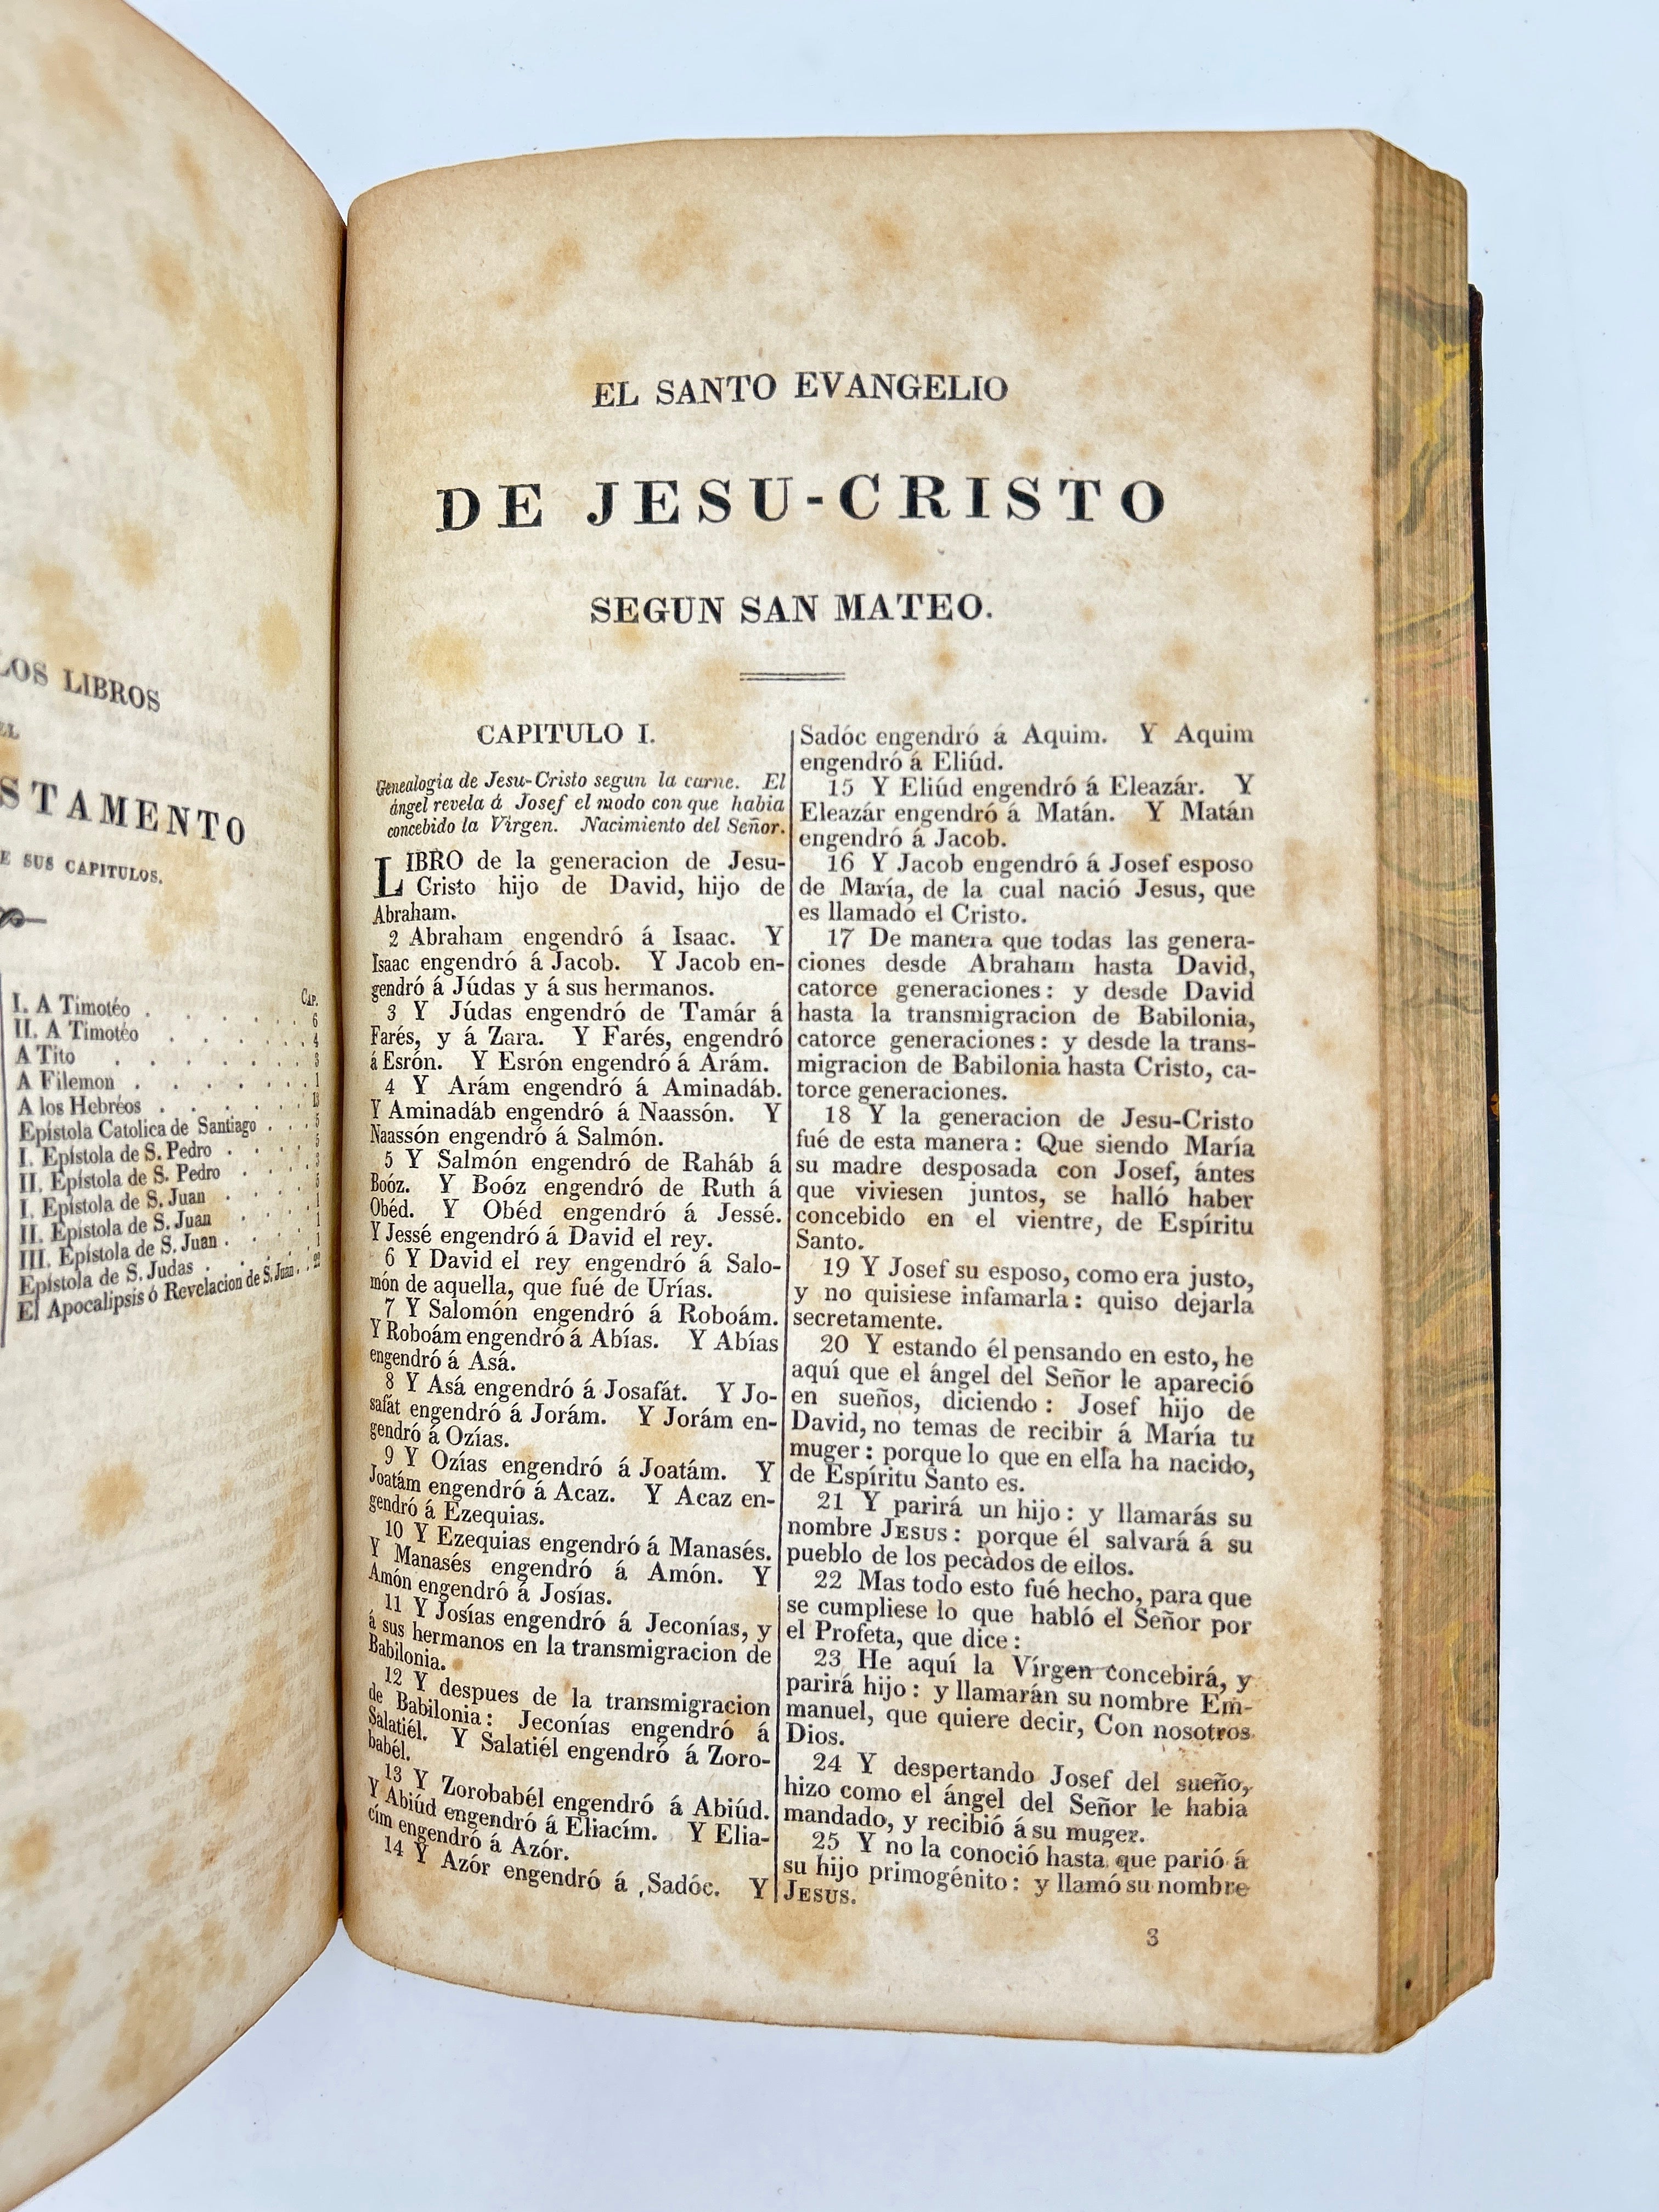 LOS LIBROS
EL
STAMENTO
E SUS CAPITULOS.
CAP.
I. A Timotéo . . . . . 6
II. A Timotéo . . . . . 4
A Tito . . . . . . 3
A Filemon . . . . . . 1
A los Hebréos . . . . . 13
Epístola Catolica de Santiago . . . 5
I. Epístola de S. Pedro . . . . 5
II. Epístola de S. Pedro . . . . 3
I. Epístola de S. Juan . . . . 5
II. Epístola de S. Juan . . . . 1
III. Epístola de S. Juan . . . . 1
Epístola de S. Judas . . . . 1
El Apocalipsis ó Revelacion de S. Juan . . 22
EL SANTO EVANGELIO
DE JESU-CRISTO
SEGUN SAN MATEO.
CAPITULO I.
Genealogia de Jesu-Cristo segun la carne. El
ángel revela á Josef el modo con que habia
concebido la Virgen. Nacimiento del Señor.
LIBRO de la generacion de Jesu-
Cristo hijo de David, hijo de
Abraham.
2 Abraham engendró á Isaac. Y
Isaac engendró á Jacob. Y Jacob en-
gendró á Júdas y á sus hermanos.
3 Y Júdas engendró de Tamár á
Farés, y á Zara. Y Farés, engendró
á Esrón. Y Esrón engendró á Arám.
4 Y Arám engendró á Aminadáb.
Y Aminadáb engendró á Naassón. Y
Naassón engendró á Salmón.
5 Y Salmón engendró de Raháb á
Boóz. Y Boóz engendró de Ruth á
Obéd. Y Obéd engendró á Jessé.
Y Jessé engendró á David el rey.
6 Y David el rey engendró á Salo-
món de aquella, que fué de Urías.
7 Y Salomón engendró á Roboám.
Y Roboám engendró á Abías. Y Abías
engendró á Asá.
8 Y Asá engendró á Josafát. Y Jo-
safát engendró á Jorám. Y Jorám en-
gendró á Ozías.
9 Y Ozías engendró á Joatám. Y
Joatám engendró á Acaz. Y Acaz en-
gendró á Ezequias.
10 Y Ezequias engendró á Manasés.
Y Manasés engendró á Amón. Y
Amón engendró á Josías.
11 Y Josías engendró á Jeconías, y
á sus hermanos en la transmigracion de
Babilonia.
12 Y despues de la transmigracion
de Babilonia: Jeconías engendró á
Salatiél. Y Salatiél engendró á Zoro-
babél.
13 Y Zorobabél engendró á Abiúd.
Y Abiúd engendró á Eliacím. Y Elia-
cím engendró á Azór.
14 Y Azór engendró á Sadóc. Y
Sadóc engendró á Aquim. Y Aquim
engendró á Eliúd.
15 Y Eliúd engendró á Eleazár. Y
Eleazár engendró á Matán. Y Matán
engendró á Jacob.
16 Y Jacob engendró á Josef esposo
de María, de la cual nació Jesus, que
es llamado el Cristo.
17 De manera que todas las genera-
ciones desde Abraham hasta David,
catorce generaciones: y desde David
hasta la transmigracion de Babilonia,
catorce generaciones: y desde la trans-
migracion de Babilonia hasta Cristo, ca-
torce generaciones.
18 Y la generacion de Jesu-Cristo
fué de esta manera: Que siendo María
su madre desposada con Josef, ántes
que viviesen juntos, se halló haber
concebido en el vientre, de Espíritu
Santo.
19 Y Josef su esposo, como era justo,
y no quisiese infamarla: quiso dejarla
secretamente.
20 Y estando él pensando en esto, he
aquí que el ángel del Señor le apareció
en sueños, diciendo: Josef hijo de
David, no temas de recibir á María tu
muger: porque lo que en ella ha nacido,
de Espíritu Santo es.
21 Y parirá un hijo: y llamarás su
nombre JESUS: porque él salvará á su
pueblo de los pecados de ellos.
22 Mas todo esto fué hecho, para que
se cumpliese lo que habló el Señor por
el Profeta, que dice:
23 He aquí la Vírgen concebirá, y
parirá hijo: y llamarán su nombre Em-
manuel, que quiere decir, Con nosotros
Dios.
24 Y despertando Josef del sueño,
hizo como el ángel del Señor le habia
mandado, y recibió á su muger.
25 Y no la conoció hasta que parió á
su hijo primogénito: y llamó su nombre
JESUS.
3